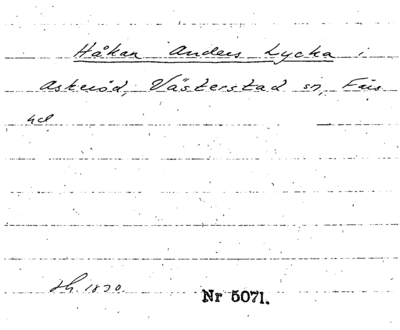 Håkan Anders Lycka i
Askeröd, Västerstad sn, Färs
hd
1830
Nr 5071.